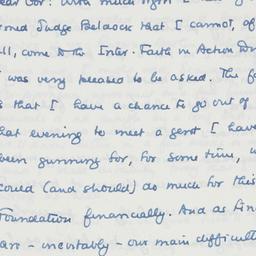 ear Cor: With much regret I
rmed Judge Pelaock that I cannot, of
ll, come to the Inter. Faith in Action Din
I was very pleased to be asked. The fa
s that I have a chance to go out of
hat evening to meet a gent I have
been gunning for, for some time, w
could (and should) do much for this
Foundation financially. And as fin
are - inevitably - our main difficult